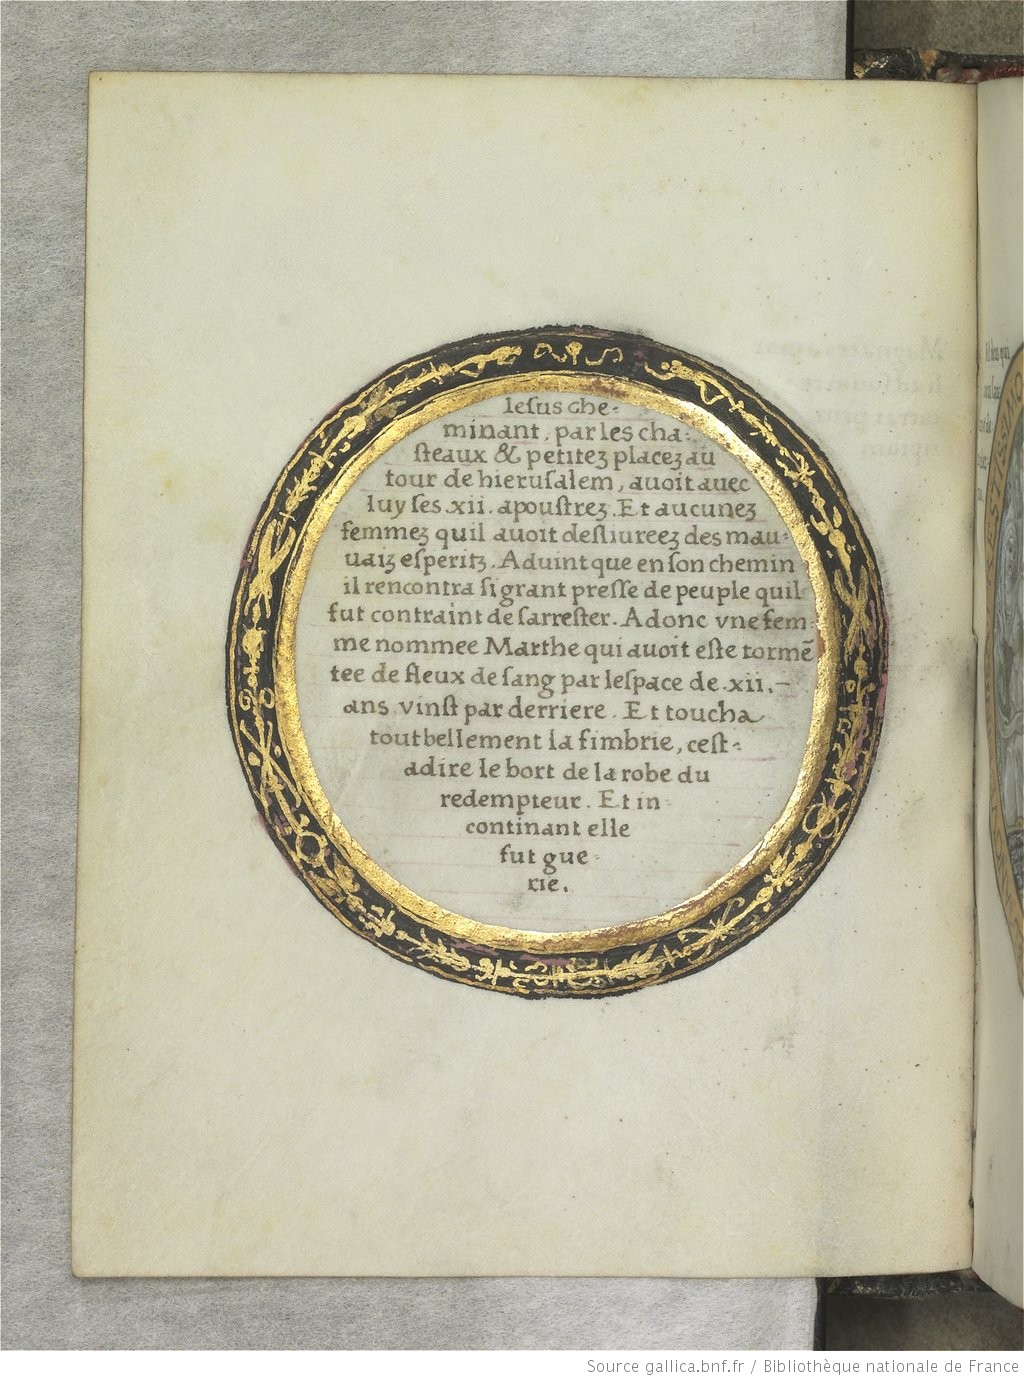 Iesus che-
minant, par les cha-
steaux & petitez placez au
tour de hierusalem, avoit avec
luy ses .xii. apoustrez. Et aucunez
femmez quil avoit desliureez des mau-
uaiz esperitz. Aduint que en son chemin
il rencontra si grant presse de peuple quil
fut contraint de sarrester. Adonc vne fem-
me nommee Marthe qui auoit este tormē
tee de fleux de sang par lespace de .xii.—
ans vinst par derriere. Et toucha
tout bellement la fimbrie, cest-
adire le bort de la robe du
redempteur. Et in-
continant elle
fut gue-
rie.
Source gallica.bnf.fr / Bibliothèque nationale de France